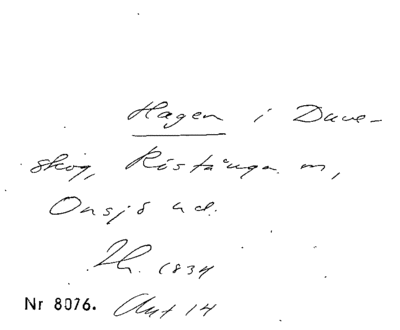 Hagen i Duve-
skog, Ristånga m,
Onsjö hd.
Lh. 1834
Nr 8076. Akt 14